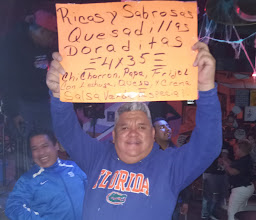 Ricas y Sabrosas
Quesadillas
Doraditas
=4x35=
Ch. Charron, Papa, Frijol
Con Lechuga, Queso, Crema
Salsa Especial
FLORIDA